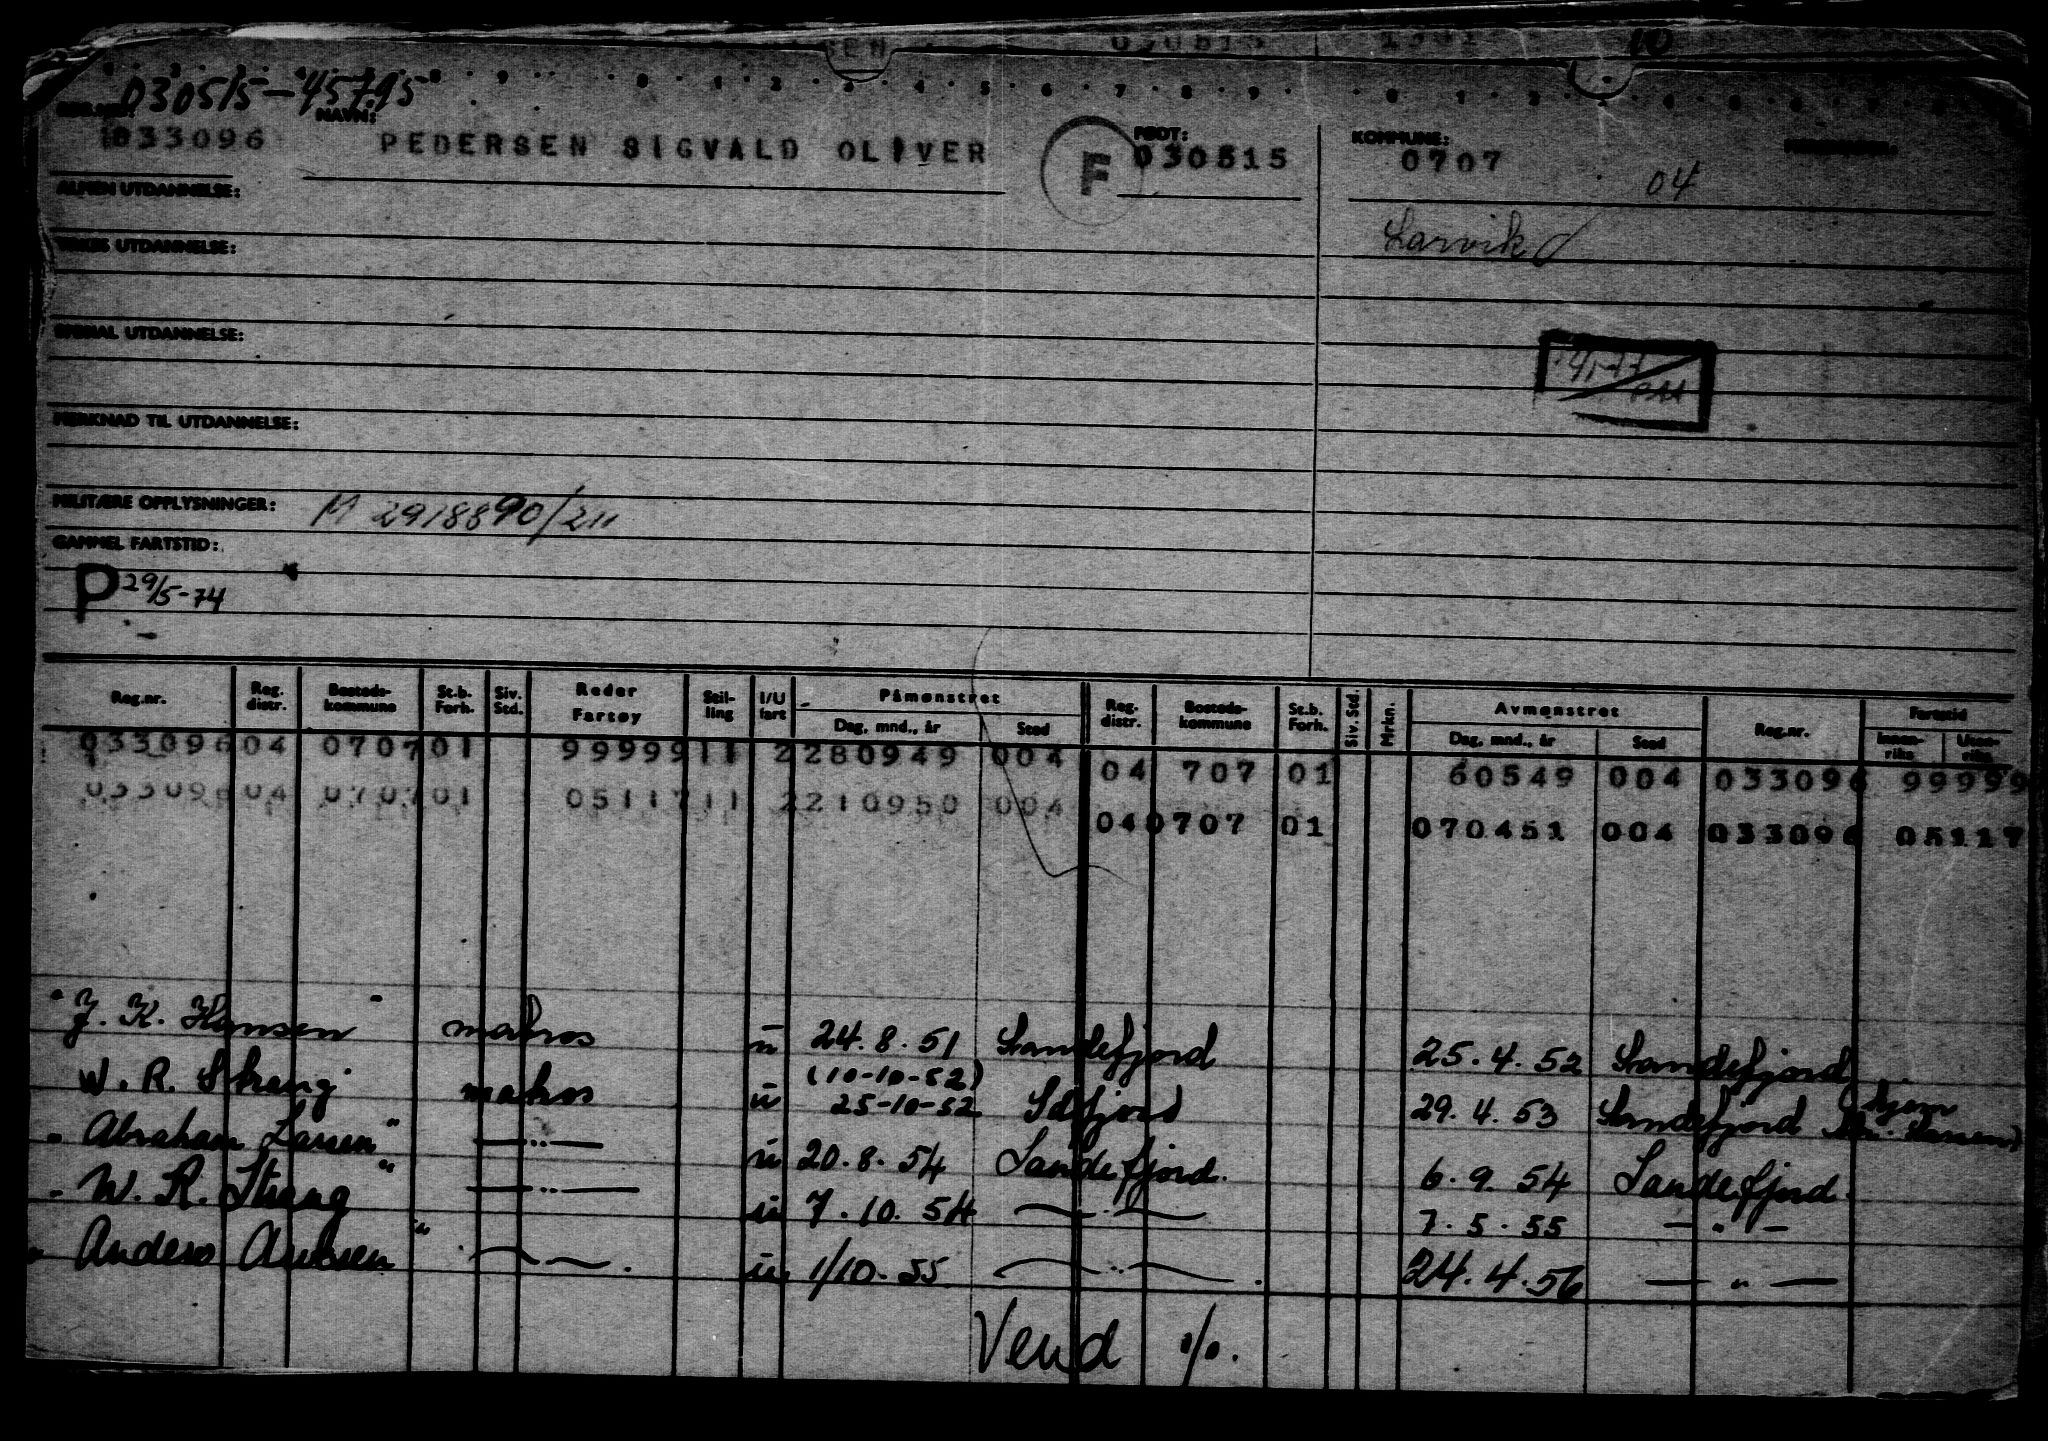 030515-45795
NAVN: FØDT: KOMMUNE:
033096 PEDERSEN SIGVALD OLIVER F 030515 0707
04
ALMEN UTDANNELSE:
Larvik
YRKES UTDANNELSE:
SPESIAL UTDANNELSE:
MERKNAD TIL UTDANNELSE:
MILITÆRE OPPLYSNINGER: M 2918890/211
GAMMEL FARTSTID:
P 29/5-74
Reg.nr. Reg. distr. Bosteds-kommune St.b. Forh. Siv. Std. Reder Fartøy Stil-ling I/U fart Påmønstret Dag, mnd., år Sted Reg. distr. Bosteds-kommune St.b. Forh. Siv. Std. Mrkn. Avmønstret Dag, mnd., år Sted Reg.nr. Fartstid Innen-riks Uten-riks
033096 04 0707 01 99999 11 2 280949 004 04 707 01 60549 004 033096 99999
033096 04 0707 01 05117 11 2 210950 004 04 0707 01 070451 004 033096 05117
"J. K. Hansen" matros u 24.8.51 Sandefjord 25.4.52 Sandefjord
(10-10-52)
W. R. Strang" matros u 25-10-52 Sdfjord 29.4.53 Sandefjord hjem
"Abraham Larsen" —"— u 20.8.54 Sandefjord. 6.9.54 Sandefjord.
"W. R. Strang" —"— u 7.10.54 —"— 7.5.55 —"—
"Anders Arvesen" —"— u 1/10.55 —"— 24.4.56 —"—
Vend o/o.